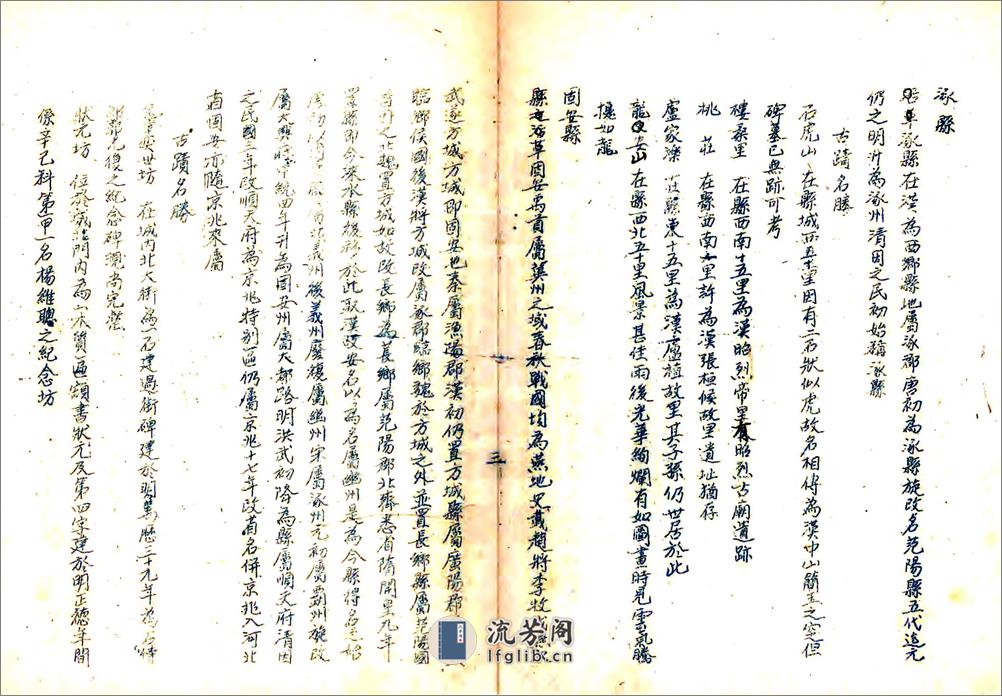 涿縣
沿革涿縣在漢為西鄉縣地屬涿郡唐初為涿縣旋改名范陽縣五代迄元
仍之明沂為涿州清因之民初始稱涿縣
古蹟名勝
石虎山 在縣城西五十里因有二石狀似虎故名相傳為漢中山簡王之但
碑墓已無跡可考
樓桑里 在縣西南十五里為漢昭烈帝里有昭烈古廟遺跡
桃 莊 在縣西南七里許為漢張桓侯故里遺址猶存
盧家 在縣東十五里為漢盧植故里其子孫仍世居於此
龍安山 在縣西北五十里風景甚佳雨後光華絢爛有如圖畫時見雲氣騰
如龍
固安縣
縣之沿革固安禹貢屬冀州之域春秋戰國均為燕地史載趙將李牧
武遂方城方城即固安也秦屬漁陽郡漢初仍置方城縣屬廣陽郡
臨鄉侯國後漢將方城改屬涿郡臨鄉魏於方城之外並置長鄉縣屬范陽國
晉因之北魏置方城如故改長鄉為萇鄉屬范陽郡北齊悉省隋開皇九年
置縣即今淶水縣後移於此取漢故安名以為名屬幽州是為今縣得名之始
義州後義州廢復屬幽州宋屬涿州元初屬霸州旋改
屬大興府中統四年升為固安州屬大都路明洪武初降為縣屬順天府清因
之民國三年改順天府為京兆特別區仍屬京兆十七年改省名併京兆入河北
省固安亦隨京兆來屬
古蹟名勝
世坊 在城內北大街為一石建過街碑建於明萬歷三十九年為
復之紀念碑現尚完整
狀元坊 位於城門內為一木質匾額書狀元及第四字建於明正德年間
係辛巳科第一甲一名楊維聰之紀念坊
三
流芳阁
lfglib.cn